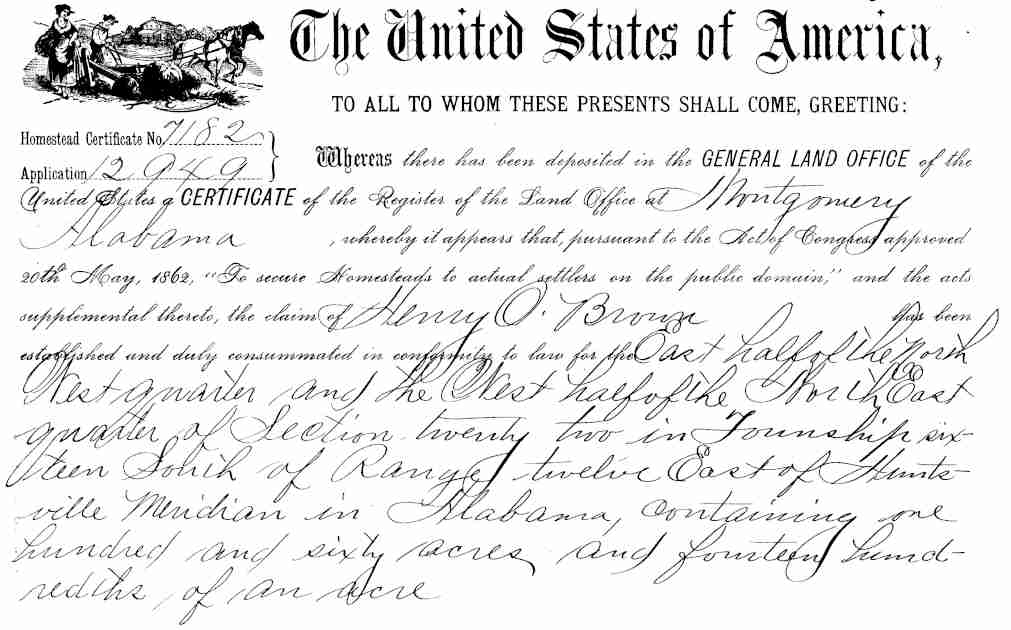 The United States of America,
TO ALL TO WHOM THESE PRESENTS SHALL COME, GREETING:
Homestead Certificate No. 7182
Application 12949
Whereas there has been deposited in the GENERAL LAND OFFICE of the
United States a CERTIFICATE of the Register of the Land Office at Montgomery
Alabama , whereby it appears that, pursuant to the Act of Congress approved
20th May, 1862, "To secure Homesteads to actual settlers on the public domain," and the acts
supplemental thereto, the claim of Henry O. Brown has been
established and duly consummated in conformity to law for the East half of the North
West quarter and the West half of the North East
quarter of Section twenty two in Township six-
teen South of Range twelve East of Hunts-
ville Meridian in Alabama, containing one
hundred and sixty acres and fourteen hund-
redths of an acre